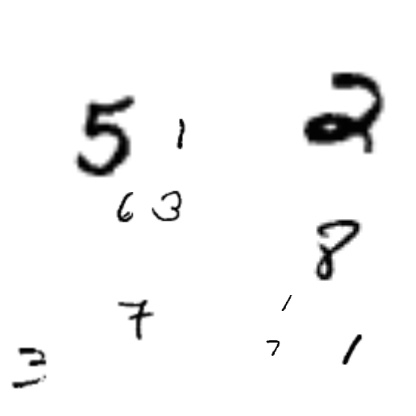 5 1 2
6 3
8
7 1
3 7 1